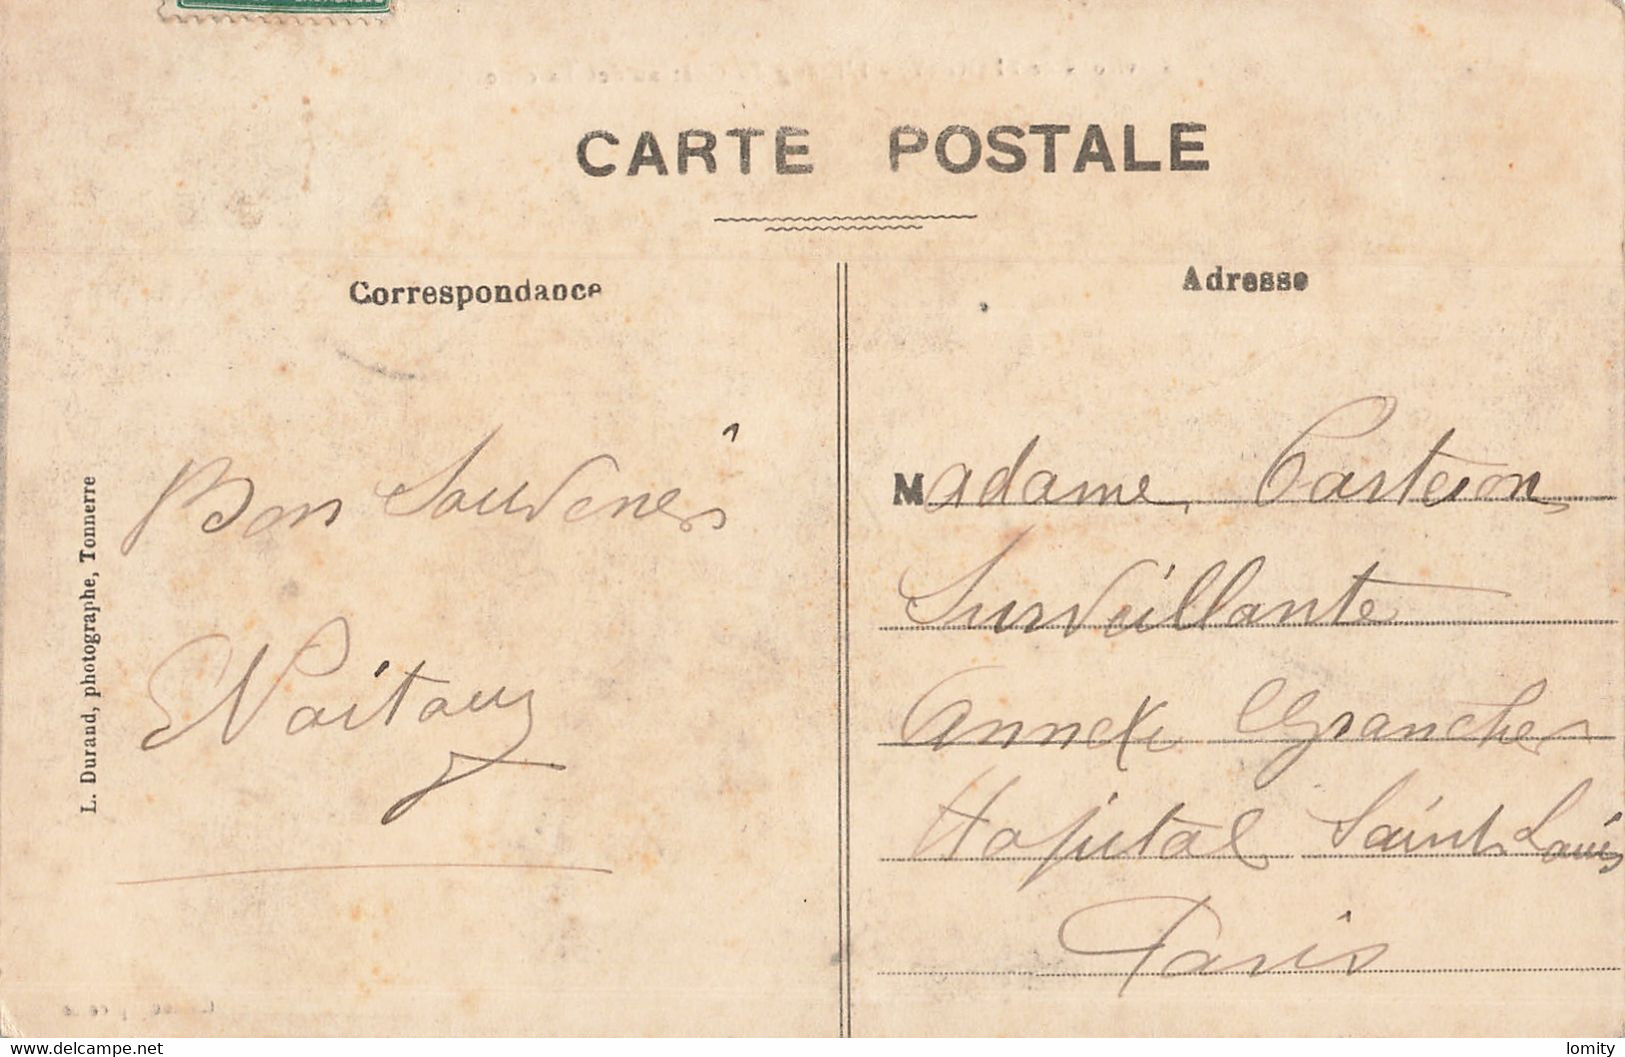 CARTE POSTALE
Correspondance
Adresse
Bon Souvenir
L. Durand, photographe, Tonnerre
Madame Casteion
Surveillante
Annexe Grancher
Hopital Saint Louis
Paris
www.delcampe.net
lomity